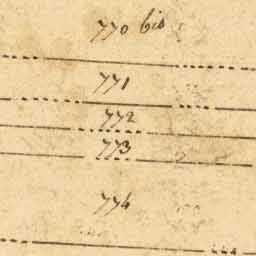 770 bis
771
772
773
774